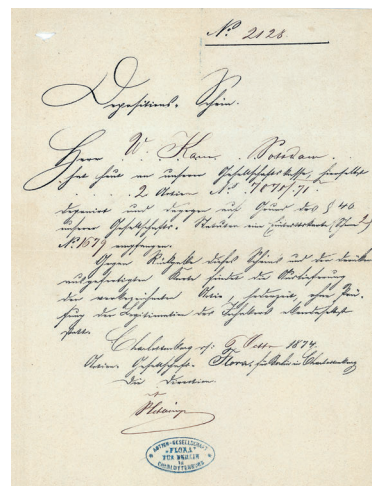 No. 2128.
Depositions-Schein.
Herr W. Kam. Potsdam.
hat heute an unserer Gesellschaftskasse, hierselbst
2 Actien No 7070/71
deponirt und dagegen auf Grund des § 40
unserer Gesellschafts-Statuten ein
No. 1679 empfangen.
Gegen Rückgabe dieses Scheins und der darüber
ausgefertigten Karte findet die Auslieferung
der verzeichneten Actie jederzeit, ohne Prü-
fung der Legitimation des Inhabers ebendaselbst
statt.
Charlottenburg, 1874.
Actien-Gesellschaft Flora, für Berlin in Charlottenburg
Die Direction.
ACTIEN-GESELLSCHAFT
"FLORA"
FÜR BERLIN
IN
CHARLOTTENBURG